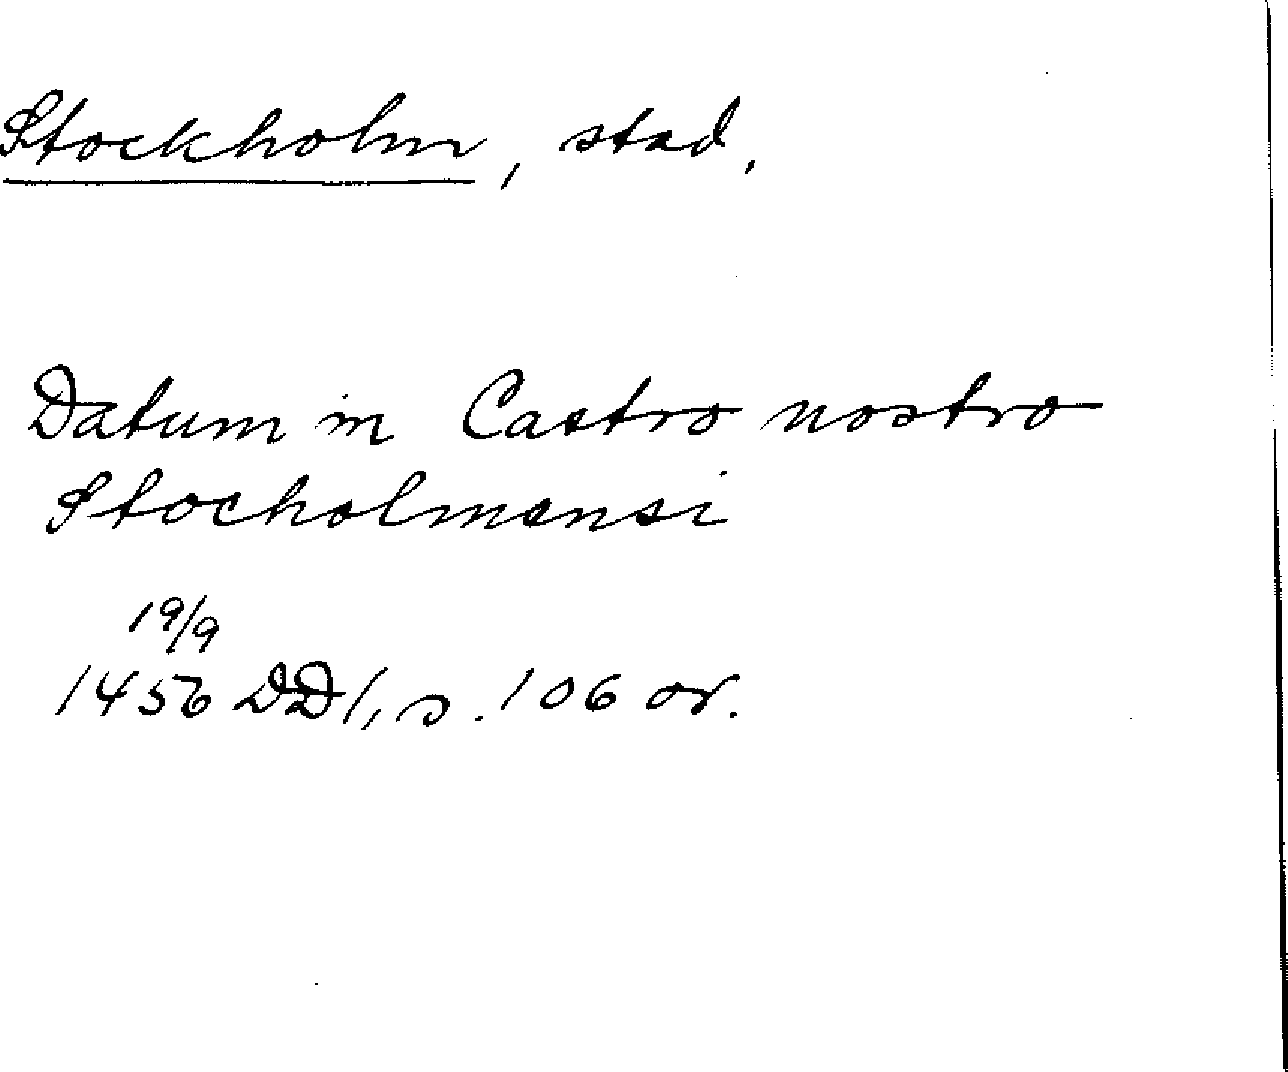 Stockholm, stad,
Datum in Castro nostro
Stocholmensi
19/9
1456 DD1, s. 106 or.